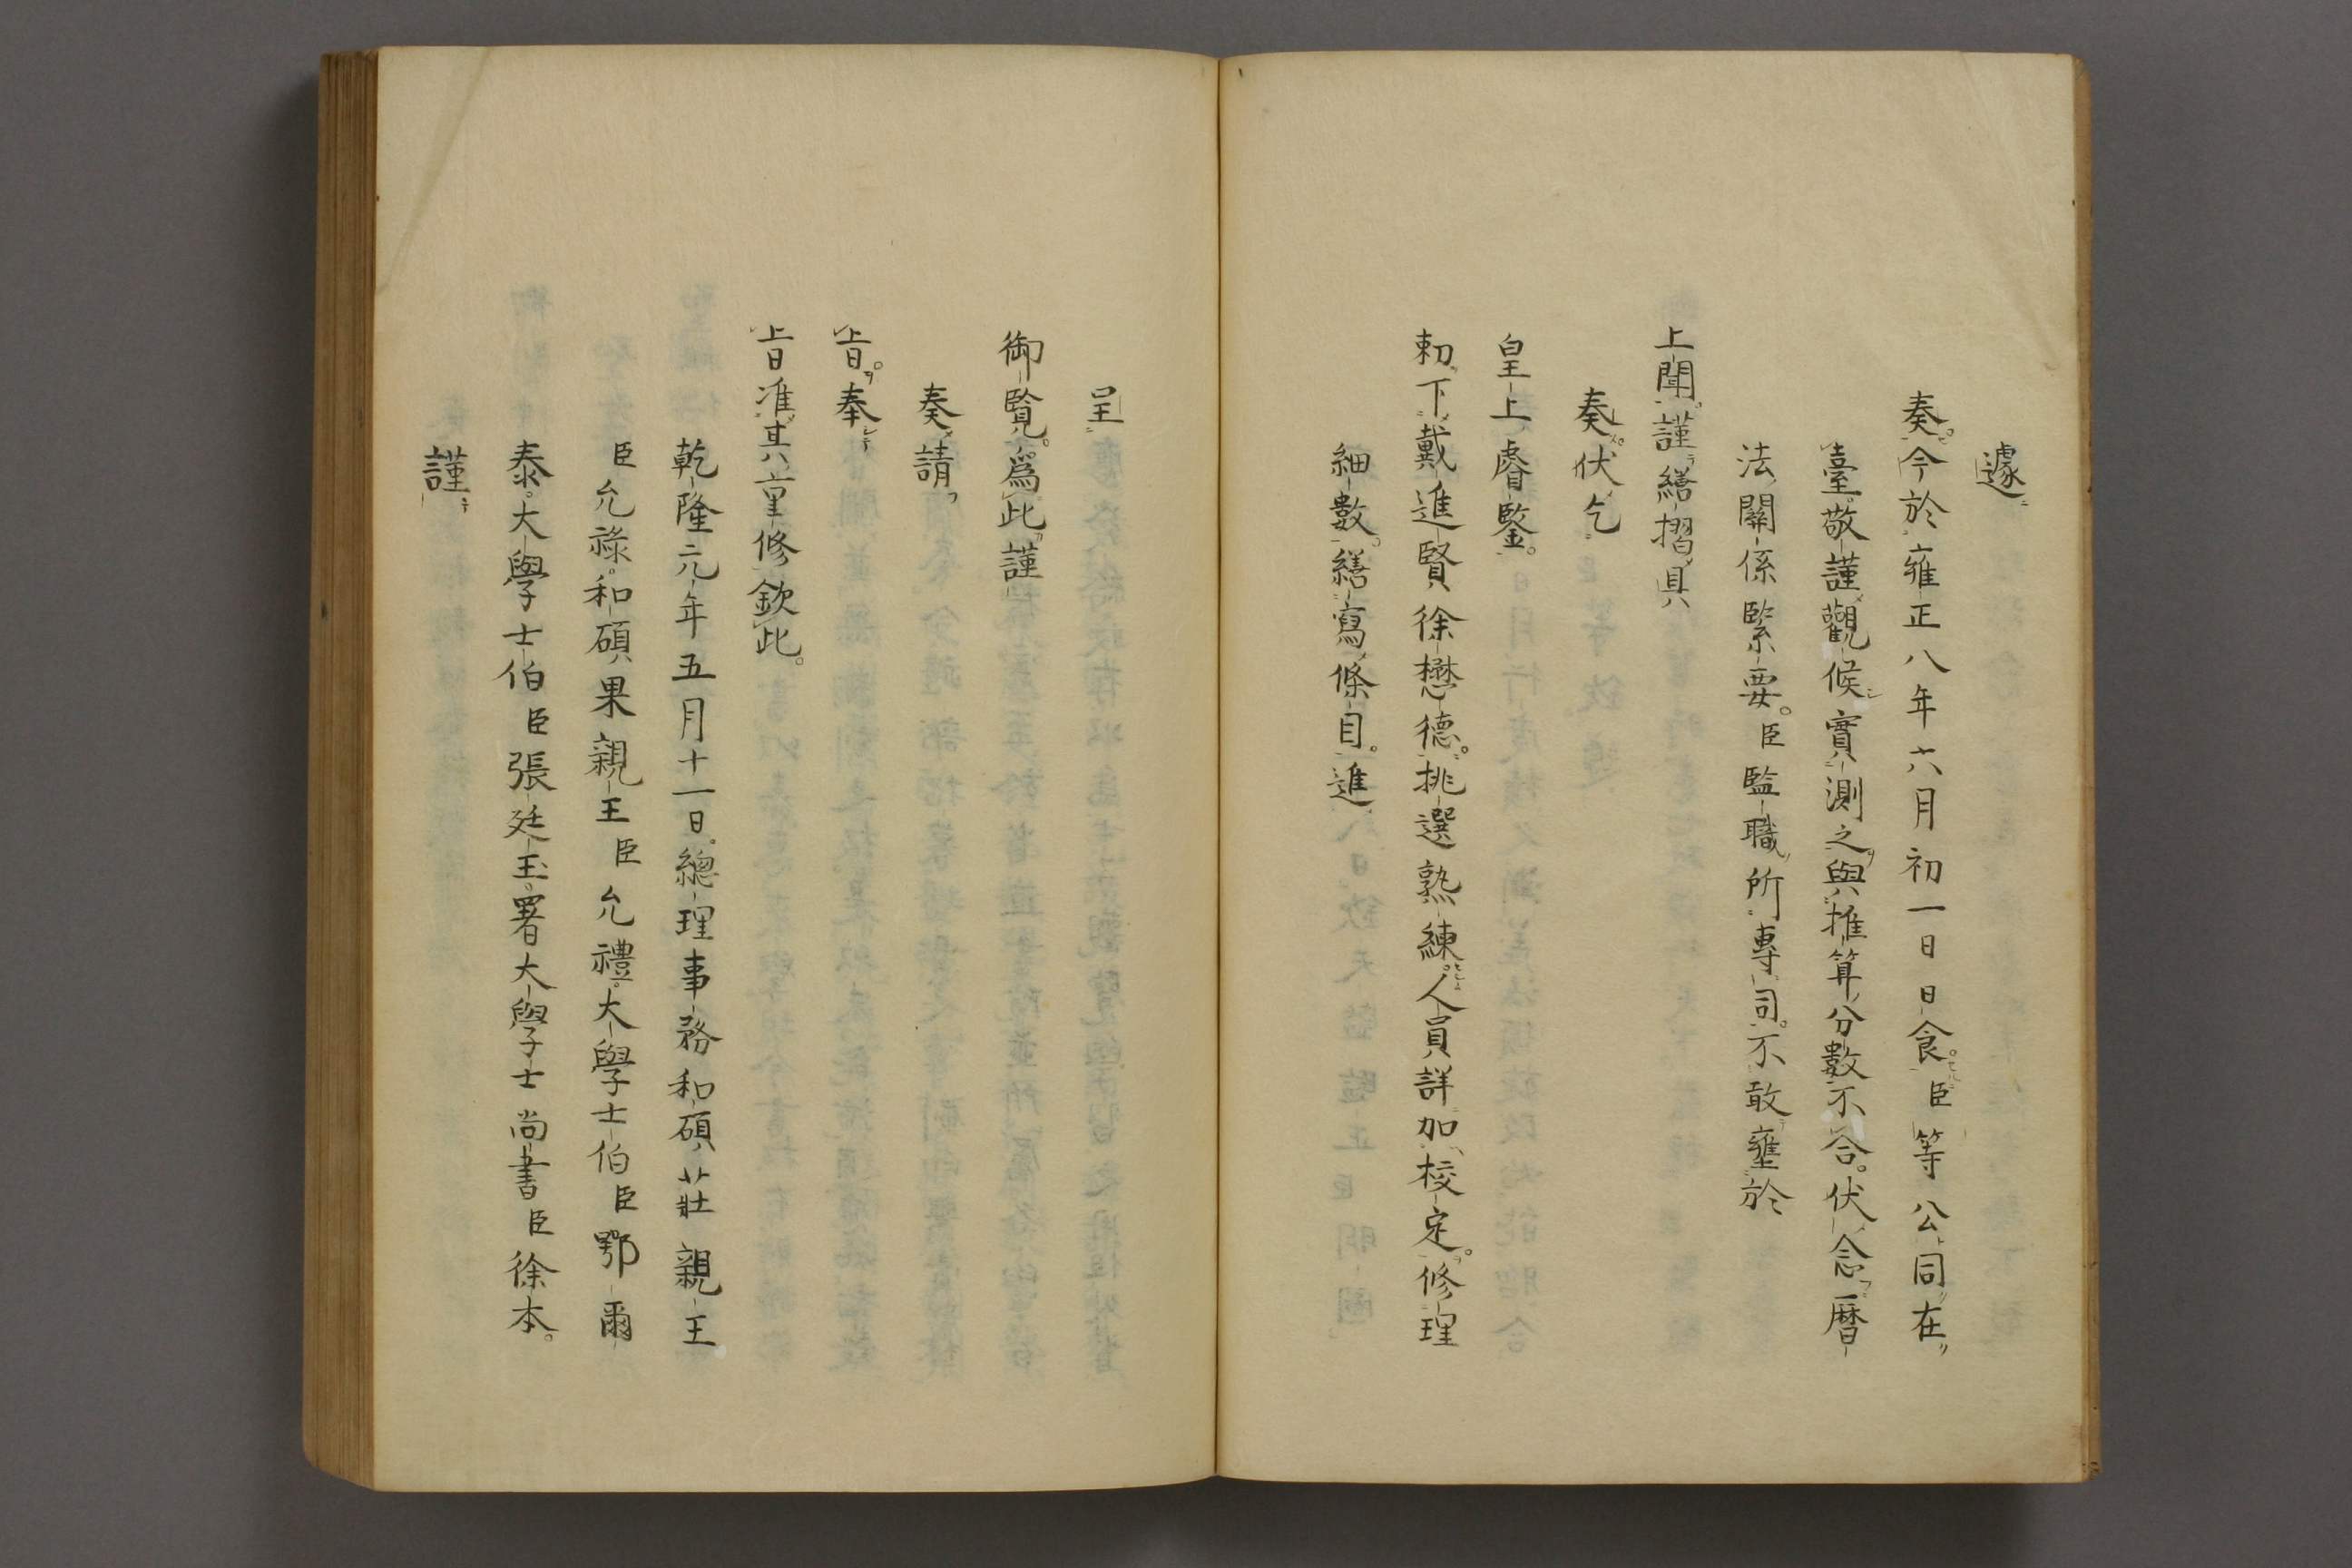 遽
奏。今於雍正八年六月初一日日食。臣等公同在
臺敬謹觀候實測之與推算分數不合。伏念曆
法關係緊要。臣監職所專司。不敢壅於
上聞。謹繕摺具
奏。伏乞
皇上睿鑒。
勅下戴進賢徐懋德。挑選熟練人員詳加校定。修理
細數。繕寫條目。進
呈
御覽。爲此謹
奏請
上旨。奉
上旨准其重修欽此。
乾隆元年五月十一日。總理事務和碩莊親王
臣允祿。和碩果親王臣允禮。大學士伯臣鄂爾
泰。大學士伯臣張廷玉。署大學士尚書臣徐本。
謹